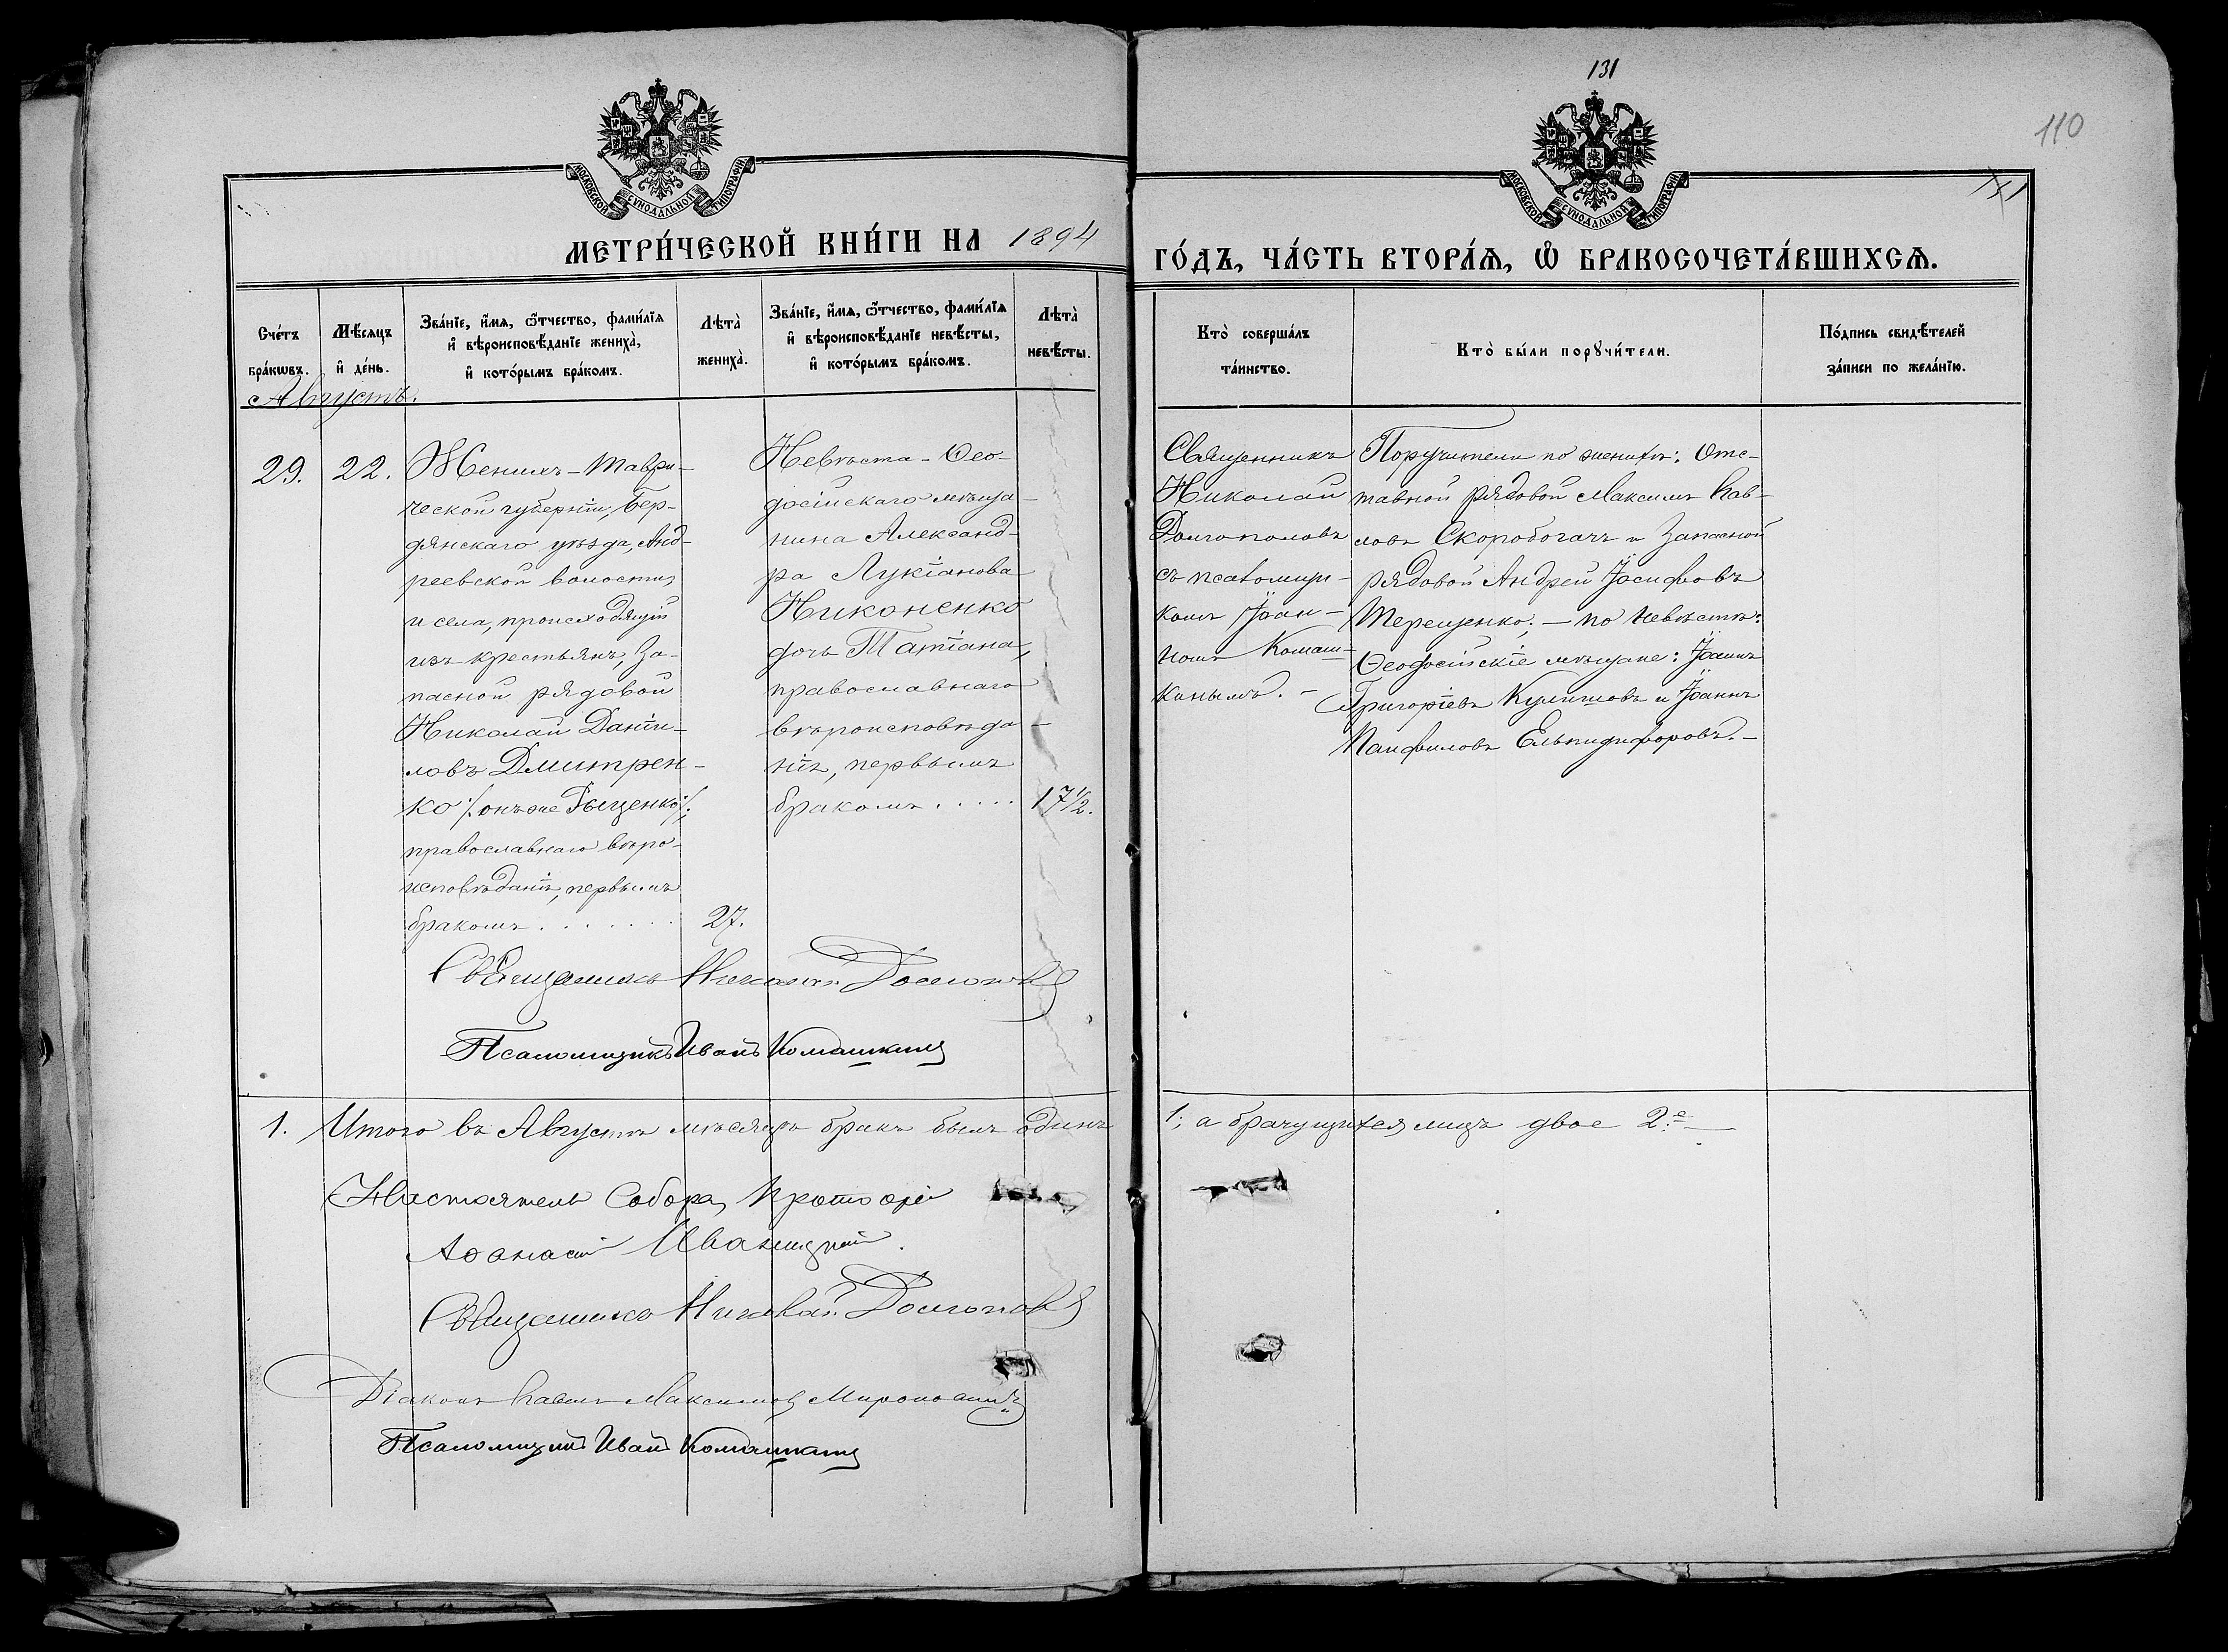 131
110
МОСКОВСКОЙ СѴНОДАЛЬНОЙ ТИПОГРАФІИ
МОСКОВСКОЙ СѴНОДАЛЬНОЙ ТИПОГРАФІИ
МЕТРИ́ЧЕСКОЙ КНИ́ГИ НА 1894
ГО́ДЪ, ЧА́СТЬ ВТОРА́Ѧ, Ѿ БРАКОСОЧЕТА́ВШИХСѦ.
Сче́тъ бра́кѡвъ.
Мѣ́сяцъ и҆ де́нь.
Зва́нїе, и҆́мѧ, ѻ҆́тчество, фами́лїѧ
и҆ вѣроисповѣ́данїе жениха̀,
и҆ кото́рымъ бра́комъ.
Лѣта̀ жениха̀.
Зва́нїе, и҆́мѧ, ѻ҆́тчество, фами́лїѧ
и҆ вѣроисповѣ́данїе невѣ́сты,
и҆ кото́рымъ бра́комъ.
Лѣта̀ невѣ́сты.
Кто̀ соверша́лъ
та́инство.
Кто̀ бы́ли порꙋчи́тели.
По́дпись свидѣ́телей
за́писи по жела́нїю.
Августъ.
29.
22.
Женихъ - Таври-
ческой губерніи, Бер-
дянскаго уѣзда, Анд-
реевской волости
и села, происходящій
изъ крестьянъ, За-
пасной рядовой
Николай Даніи-
ловъ Дмитрен-
ко /: онъ же Гыценко :/
православнаго вѣро-
исповѣданія, первымъ
бракомъ . . . . . .
27.
Невѣста - Ѳео-
досійскаго мѣща-
нина Александ-
ра Лукіанова
Никоненко
дочь Татіана,
православнаго
вѣроисповѣда-
нія, первымъ
бракомъ . . . . .
17 1/2.
Священникъ
Николай
Долгополовъ
съ псаломщи-
комъ Іоан-
номъ Комаш-
кинымъ. -
Поручители по женихѣ: Отс-
тавной рядовой Максимъ Пав-
ловъ Скоробогачъ и Запасной
рядовой Андрей Іосифовъ
Терещенко; - по невѣстѣ:
Ѳеодосійскіе мѣщане: Іоаннъ
Григоріевъ Кулишовъ и Іоаннъ
Панфиловъ Ельпидифоровъ. -
Священникъ Николай Долгополовъ
Псаломщикъ Иванъ Комашкинъ
1. Итого въ Августѣ мѣсяцѣ бракъ былъ одинъ
1; а брачущихся лицъ двое 2.е
Настоятель Собора, Протоіерей
Аѳанасій Иваницкій.
Священникъ Николай Долгополовъ
Діаконъ Павелъ Максимовъ
Псаломщикъ Иванъ Комашкинъ